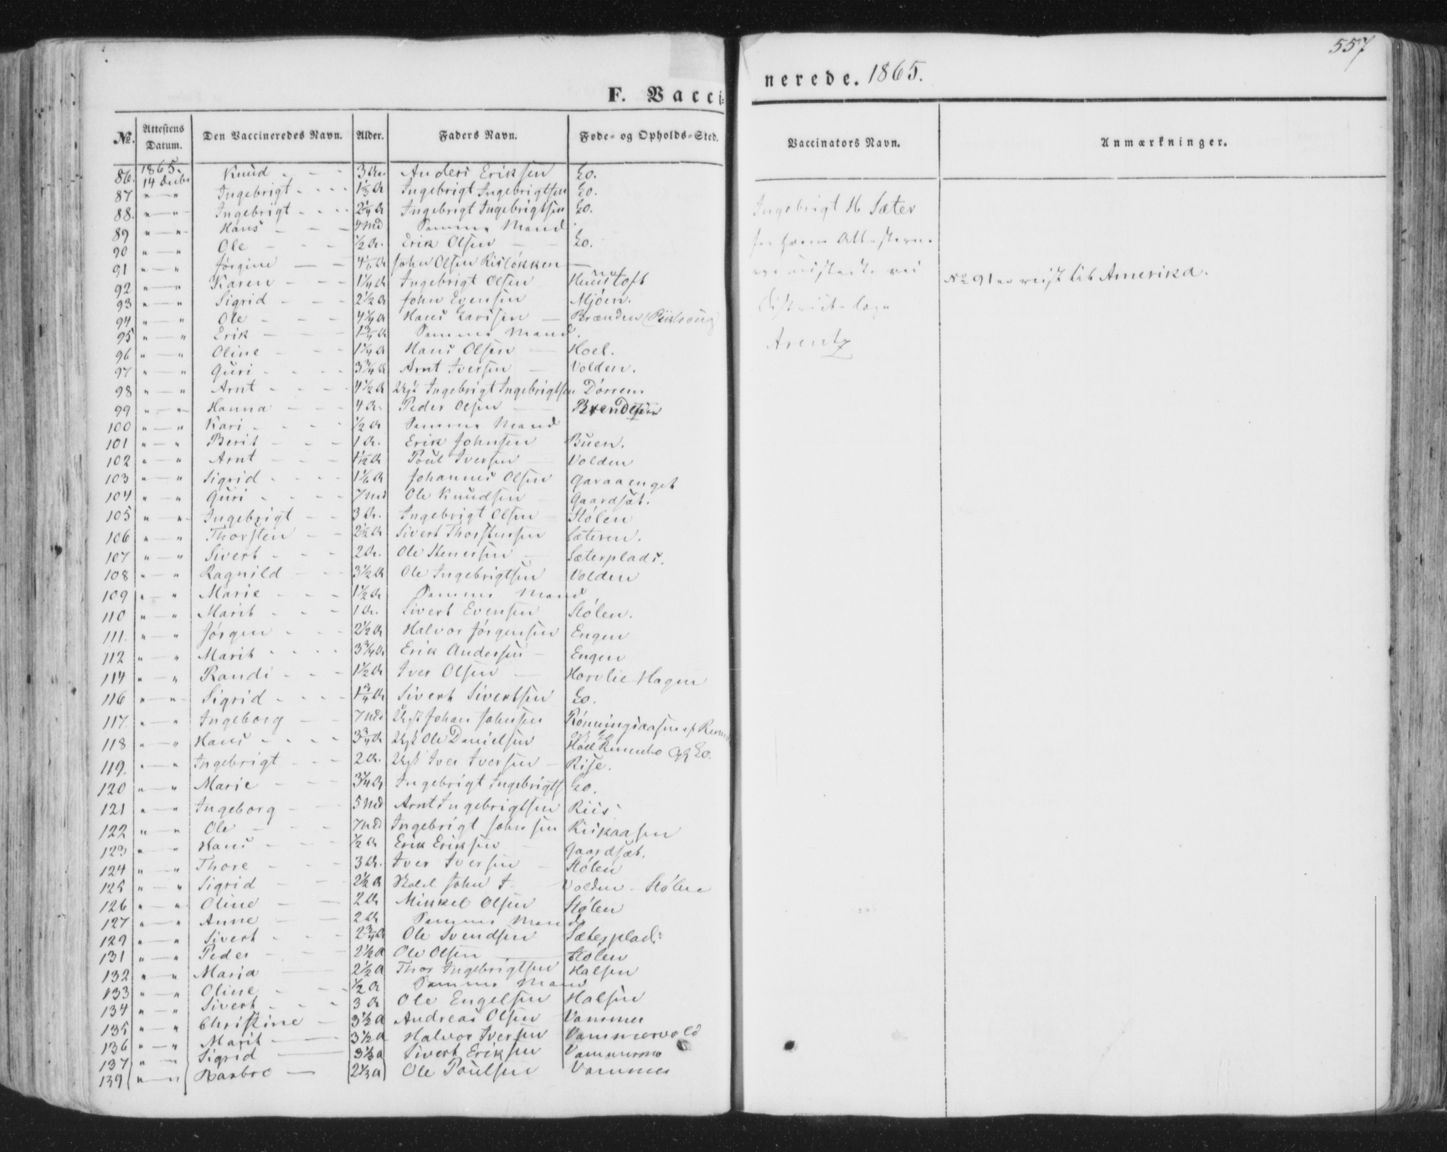 557
F. Vaccinerede. 1865.
№. Attestens Datum. Den Vaccineredes Navn. Alder. Faders Navn. Føde- og Opholds-Sted. Vaccinators Navn. Anmærkninger.
1865.
86. 14 Decbr Knud 3 Anders Eriksen Eo.
87 " — " Ingebrigt Ingebrigt Ingebrigtsen Eo.
88. " — " Ingebrigt 2¼ Ingebrigt Ingebrigtsen Eo.
89 " — " Hans 4 Md Samme Mand
90 " — " Ole ½ Erik Olsen Eo.
91 " — " Jørgine John Olsen Risløkken —
92 " — " Karen 1¼ Ingebrigt Olsen
93 " — " Sigrid 2½ John Evensen Mjøen.
94 " — " Ole Hans Larsen Brænden
95 " — " Erik 1¾ Samme Mand.
96 " — " Oline 1¼ Hans Olsen Hoel.
97 " — " Guri 3¾ Arnt Iversen Volden.
98 " — " Arnt 4½ Ingebrigt Ingebrigtsen
99 " — " Hanna 4 Peder Olsen
100 " — " Kari ½ Samme Mand
101 " — " Berit 1 Erik Johnsen Buen.
102 " — " Arnt 1½ Poul Iversen Volden
103 " — " Sigrid Johannes Olsen Garaaenget
104 " — " Guri 7 Md Ole Knudsen Gaardsæt.
105 " — " Ingebrigt 3 Ingebrigt Olsen Stølen
106 " — " Thorsten 2½ Sivert Thorstensen Sæteren.
107 " — " Sivert 2 Ole Stenersen Sæterplads.
108 " — " Ragnild 3½ Ole Ingebrigtsen Volden
109 " — " Marie 1½ Samme Mand
110 " — " Marit 1 Sivert Evensen Stølen.
111. " — " Jørgen 2½ Halvor Jørgensen Engen
112 " — " Marit 3¾ Erik Andersen Engen
114 " — " Randi 1½ Iver Olsen Horvlie Hagen
116 " — " Sigrid 1¾ Sivert Sivertsen Eo.
117. " — " Ingeborg 7 Md Johan Johnsen
118 " — " Hans 3¾ Ole Danielsen
119. " — " Ingebrigt 2 Iver Iversen Rise.
120 " — " Marie 3¼ Ingebrigt Ingebrigts Eo.
121 " — " Ingeborg 5 Md Arnt Ingebrigtsen Riis
122 " — " Ole 7 Md Ingebrigt Johnsen Riiskaasen
123 " — " Hans ½ Erik Eriksen Gaardsæt.
124 " — " Thore 3 Iver Iversen Stølen
125 " — " Sigrid 2½ John Volden Stølen
126 " — " Oline 2 Mikkel Olsen Stølen
127 " — " Anne 2 Samme Mand
129 " — " Sivert 2¾ Ole Svendsen Sæterplads
131 " — " Peder 2½ Ole Olsen Stølen
132 " — " Maria 2½ Thor Ingebrigtsen Halsen
133 " — " Oline ½ Samme Mand
134 " — " Sivert 3 Ole Engelsen Halsen
135 " — " Christine 3½ Andreas Olsen Vammer
136 " — " Marit 3½ Halvor Iversen Vammervold
137 " — " Sigrid Sivert Eriksen Vammermo
139 " — " Barbro Ole Poulsen Vammer
Ingebrigt H. Sæter
Arentz
№ 91 er reist til Amerika.